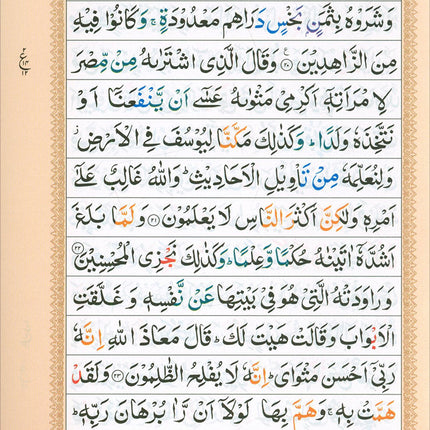 وَشَرَوْهُ بِثَمَنٍۭ بَخْسٍ دَرَاهِمَ مَعْدُوْدَةٍ ۚ وَكَانُوْا فِيْهِ
مِنَ الزَّاهِدِيْنَ ﴿۲۰﴾ وَقَالَ الَّذِى اشْتَرٰىهُ مِنْ مِّصْرَ
لِامْرَاَتِهٖۤ اَكْرِمِىْ مَثْوٰىهُ عَسٰٓى اَنْ يَّنْفَعَنَاۤ اَوْ
نَتَّخِذَهٗ وَلَدًا ؕ وَكَذٰلِكَ مَكَّنَّا لِيُوْسُفَ فِى الْاَرْضِ ز
وَلِنُعَلِّمَهٗ مِنْ تَاْوِيْلِ الْاَحَادِيْثِ ؕ وَاللّٰهُ غَالِبٌ عَلٰٓى
اَمْرِهٖ وَلٰكِنَّ اَكْثَرَ النَّاسِ لَا يَعْلَمُوْنَ ﴿۲۱﴾ وَلَمَّا بَلَغَ
اَشُدَّهٗۤ اٰتَيْنٰهُ حُكْمًا وَّعِلْمًا ؕ وَكَذٰلِكَ نَجْزِى الْمُحْسِنِيْنَ ﴿۲۲﴾
وَرَاوَدَتْهُ الَّتِىْ هُوَ فِىْ بَيْتِهَا عَنْ نَّفْسِهٖ وَغَلَّقَتِ
الْاَبْوَابَ وَقَالَتْ هَيْتَ لَكَ ؕ قَالَ مَعَاذَ اللّٰهِ اِنَّهٗ
رَبِّىْۤ اَحْسَنَ مَثْوَاىَ ؕ اِنَّهٗ لَا يُفْلِحُ الظّٰلِمُوْنَ ﴿۲۳﴾ وَلَقَدْ
هَمَّتْ بِهٖ ۚ وَهَمَّ بِهَا لَوْلَاۤ اَنْ رَّاٰ بُرْهَانَ رَبِّهٖ ؕ